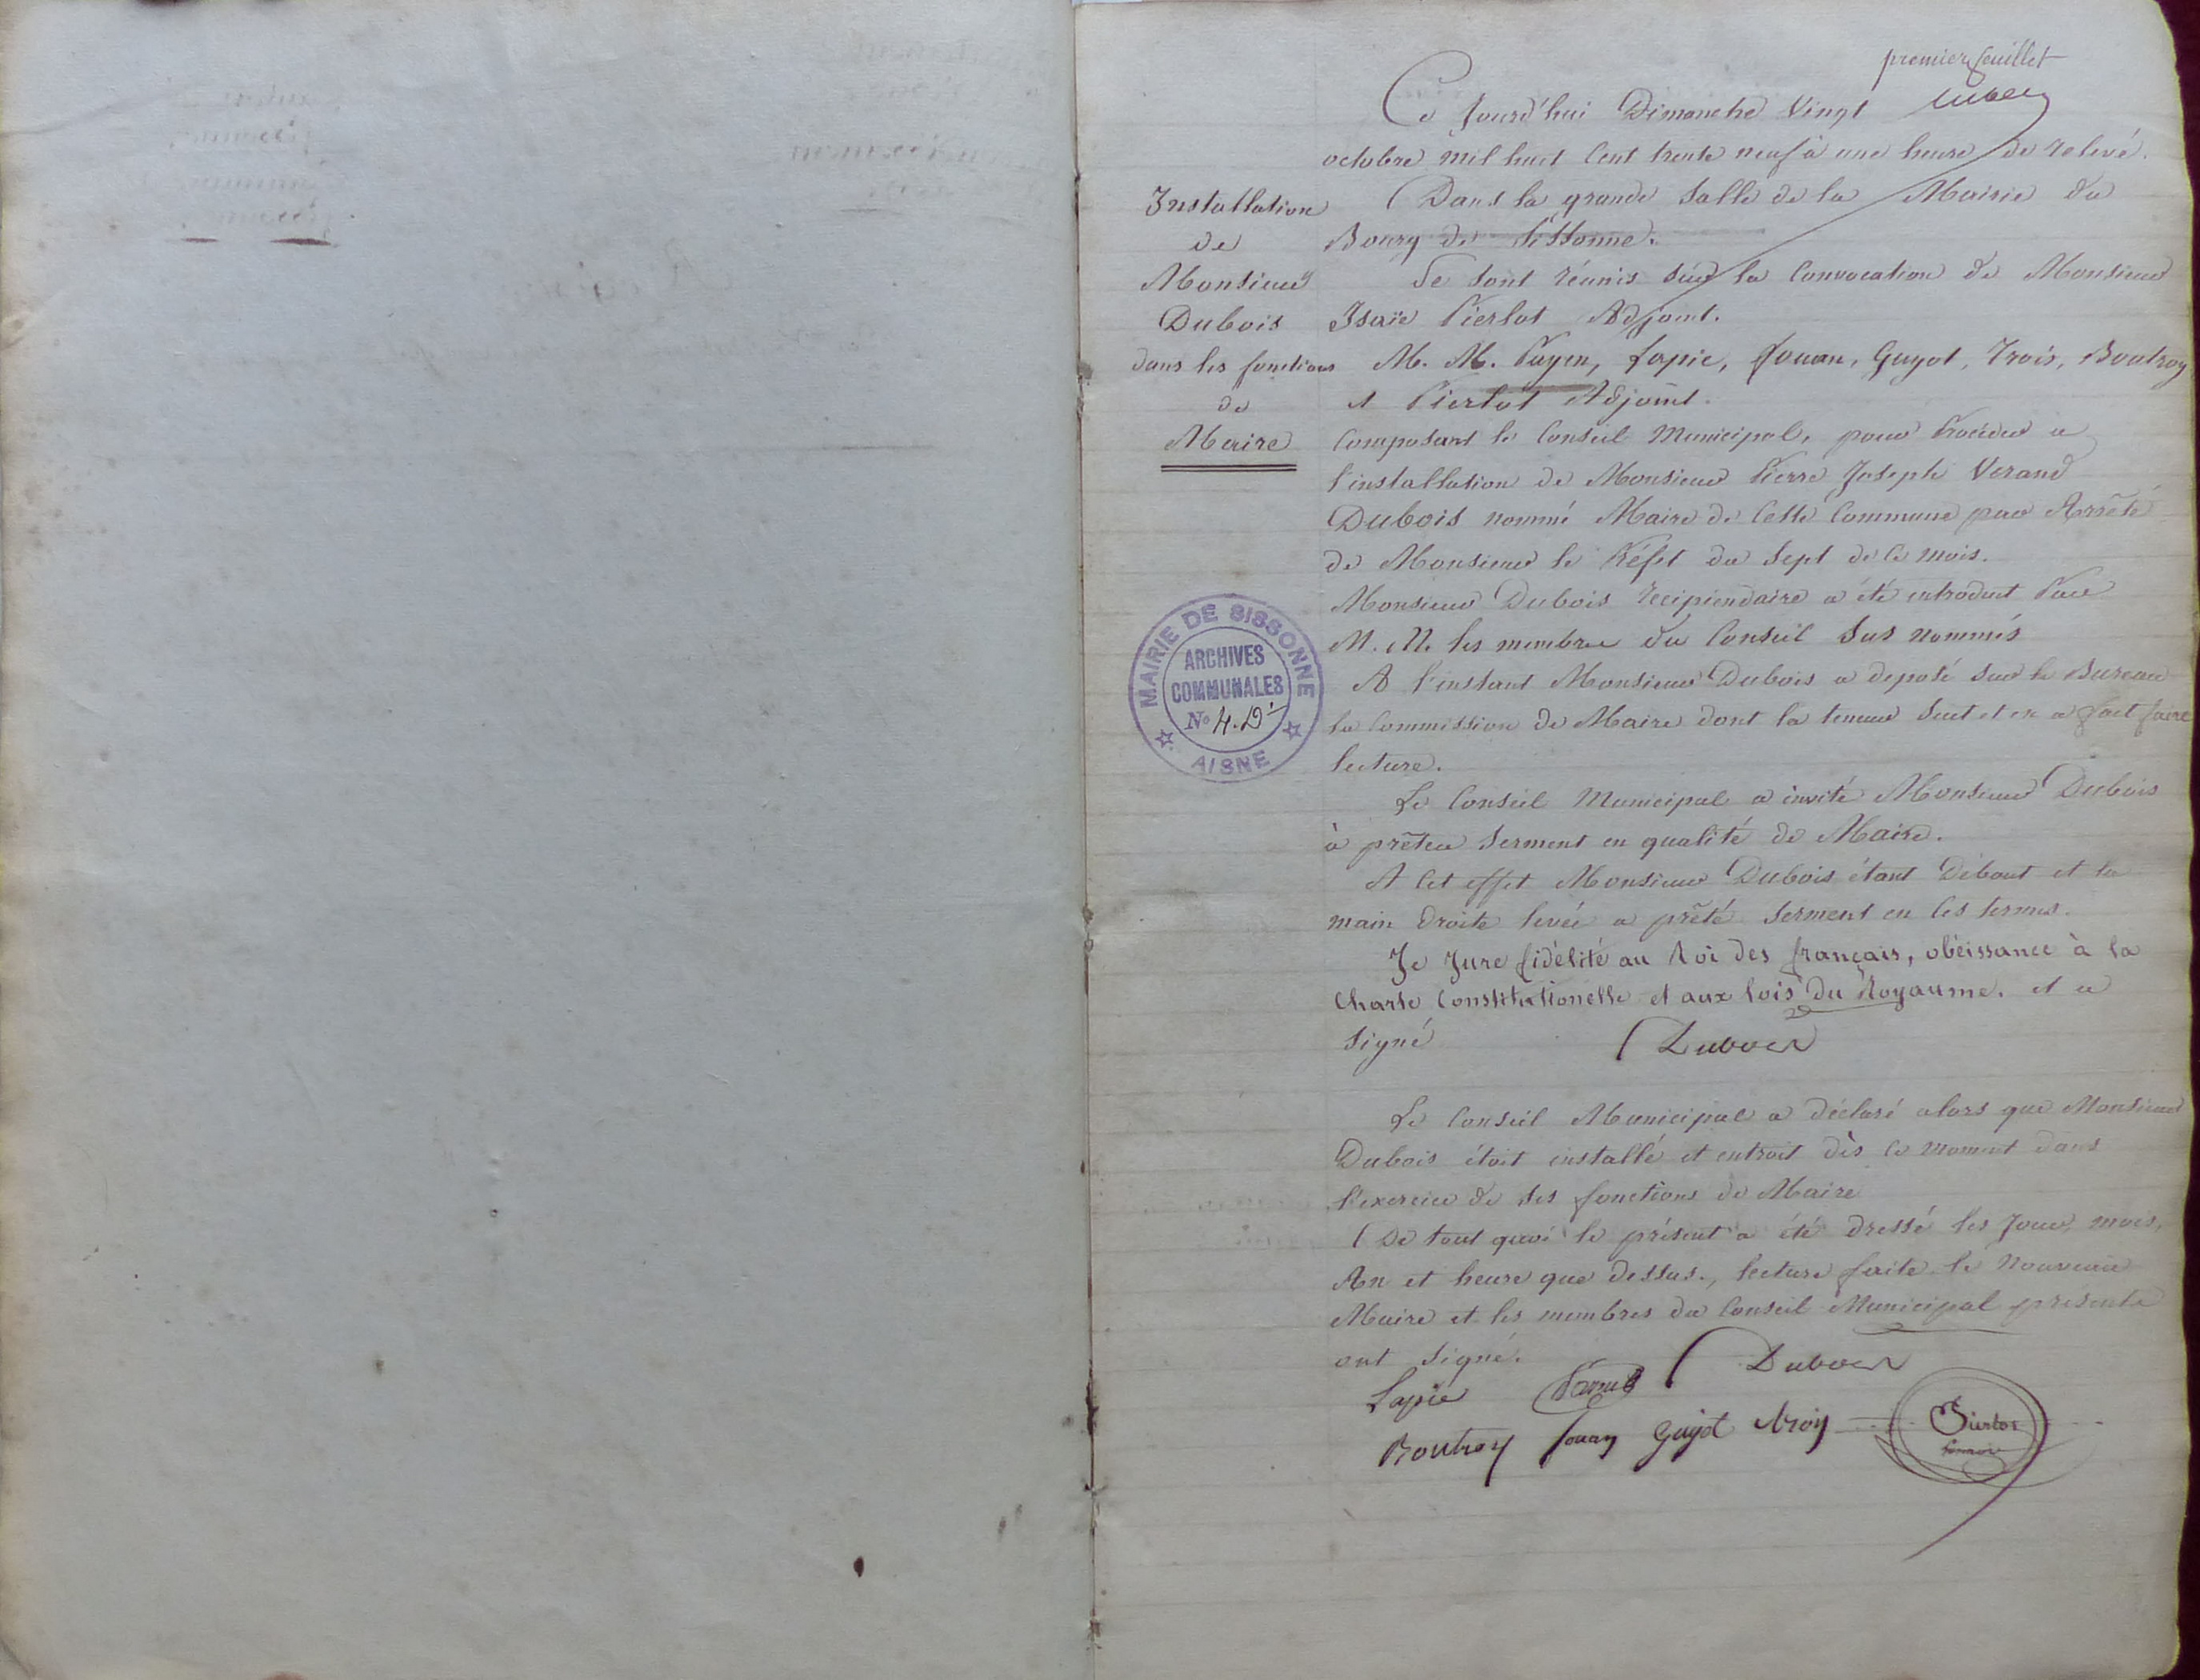 premier feuillet
Ce Jourd'hui Dimanche Vingt
octobre mil huit Cent trente neuf à une heure de relevé.
Installation
de
Monsieur
Dubois
dans les fonctions
de
Maire
Dans la grande Salle de la Mairie du
Bourg de Sissonne.
Se sont réunis sur la Convocation de Monsieur
Isaïe Pierlot Adjoint.
M. M. Payen, Lapie, Jouan, Guyot, Trois, Boutroy
et Pierlot Adjoint.
Composant le Conseil Municipal, pour Procéder a
l'installation de Monsieur Pierre Joseph Verand
Dubois nommé Maire de Cette Commune par Arrêté
de Monsieur le Préfet du Sept de Ce mois.
Monsieur Dubois Recipiendaire a été introduit Par
M. M. les membre du Conseil Sus nommés
A l'instant Monsieur Dubois a deposé Sur le Bureau
la Commission de Maire dont la teneur Suit et en a fait faire
lecture.
MAIRIE DE SISSONNE
ARCHIVES
COMMUNALES
No 4.D1
AISNE
Le Conseil Municipal a invité Monsieur Dubois
à prêter Serment en qualité de Maire.
A Cet effet Monsieur Dubois étant Débout et la
main Droite levée a prêté Serment en Ces termes.
Je Jure fidélité au Roi des français, obéissance à la
Charte Constitutionelle et aux lois du Royaume. et a
Signé
Dubois
Le Conseil Municipal a déclaré alors que Monsieur
Dubois étoit installé et entroit dès Ce moment dans
l'exercice de Ses fonctions de Maire
De tout quoi le présent a été dressé les Jour, mois,
An et heure que dessus., lecture faite le Nouveau
Maire et les membres du Conseil Municipal présents
ont Signé.
Dubois
Lapie
Boutroy Jouan Guyot Trois
Pierlot